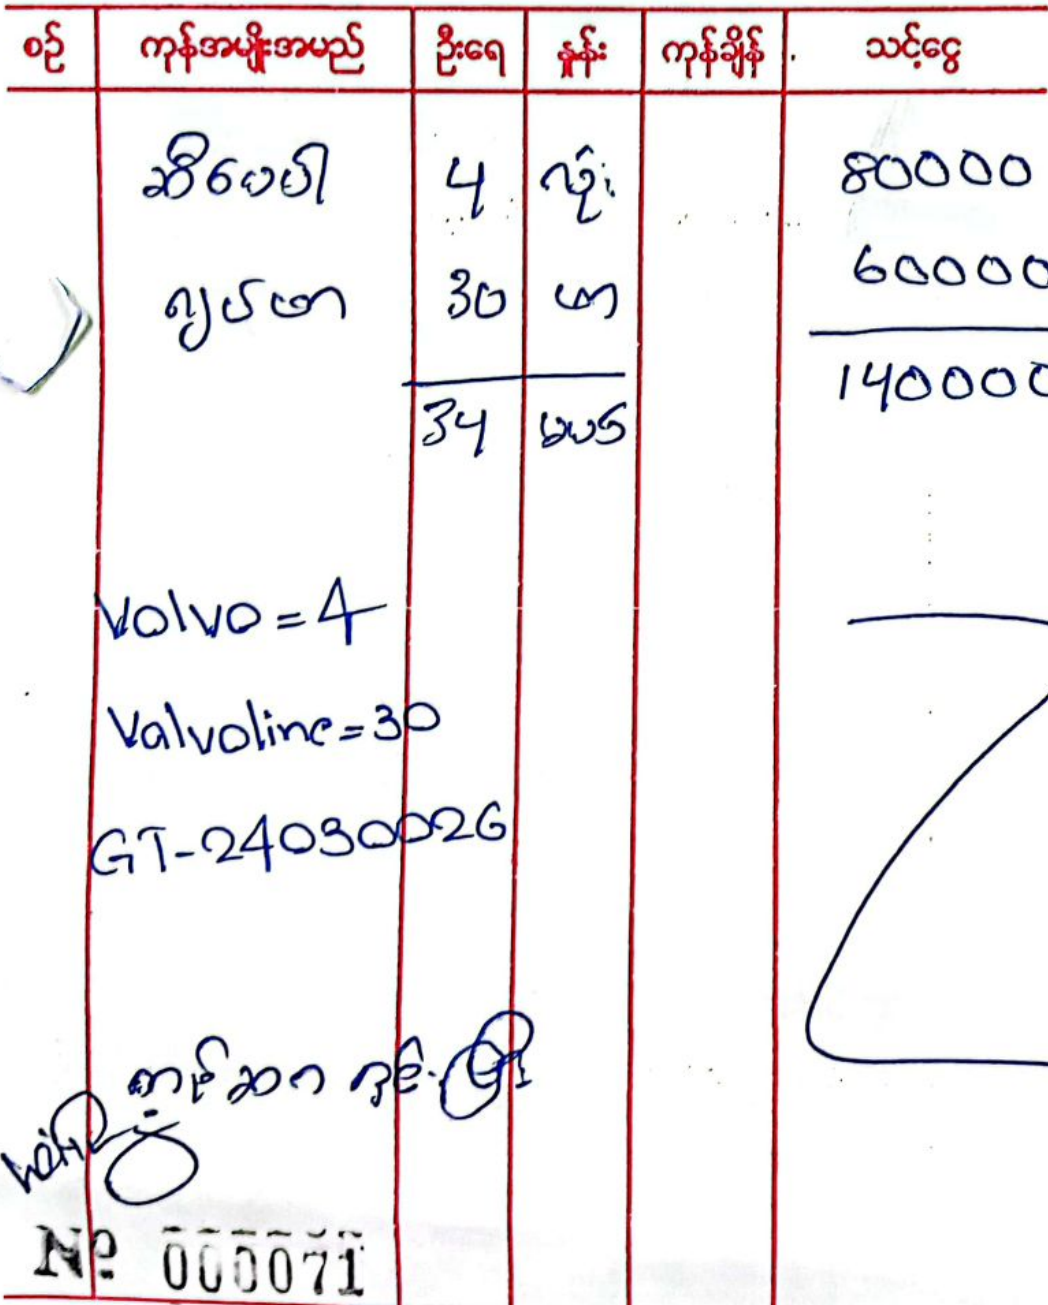 စဉ် ကုန်အမျိုးအမည် ဦးရေ နှုန်း ကုန်ချိန် သင့်ငွေ
ဆီပေပါ 4 လုံး 80000
ဂျပ်ဖာ 30 ဖာ 60000
34 140000
Volvo = 4
Valvoline = 30
GT-24030026
No 000071